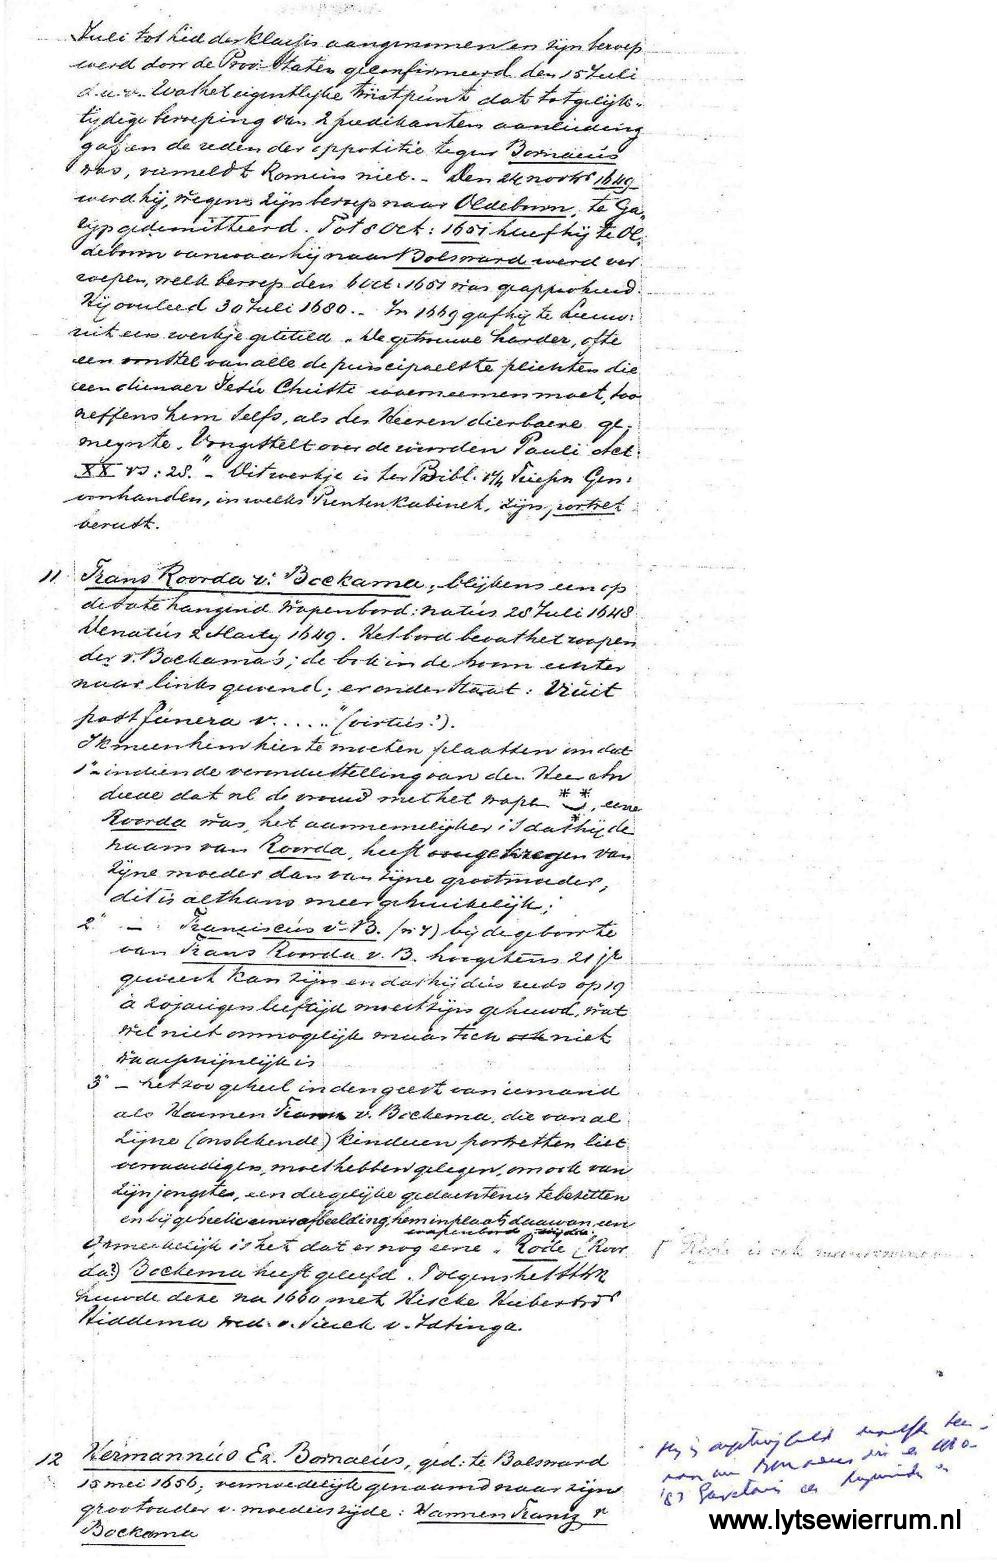 Juli tot lid der klassis aangenomen en zijn beroep
werd door de Prov: Staten geconfirmeerd den 15 Juli
d.a.v. Wat het eigentlijke twistpunt dat tot gelijk-
tijdige beroeping van 2 predikanten aanleiding
gaf en de reden der oppositie tegen Bornaeus
was, vermeldt Romein niet. - Den 24 novbr 1649
werd hij, wegens zijn beroep naar Oldeborn, te Ga-
lijp gedemitteerd. Tot 8 Oct: 1651 bleef hij te Ol-
deborn vanwaar hij naar Bolsward werd ver
roepen, welk beroep den 6 Oct. 1651 was geapprobeerd.
Hij overleed 30 Juli 1680. - In 1669 gaf hij te Leeuw:
uit een werkje getiteld "De getrouwe harder, ofte
een voorstel van alle de principaelste plichten die
een dienaer Jesu Christi waerneemen moet, soo
neffens hem selfs, als des Heeren dierbaere ge-
meynte. Voorgestelt over de woorden Pauli Act.
XX vs: 28." - Dit werkje is ter Bibl. v/h Friesch Gen:
voorhanden, in welks Prentenkabinet, zijn portret
berust.
11 Frans Roorda v: Bockama, blijkens een op
de State hangend wapenbord: natus 28 Juli 1648
Denatus 2 Martij 1649. Het bord bevat het wapen
der v. Bockama's; de bok in de boom echter
naar links gewend; eronder staat: Vivit
post funera v....." (virtus?).
Ik meen hem hier te moeten plaatsen omdat
1° - indien de veronderstelling van den Heer
dat nl de vrouw met het wapen * * *, eene
Roorda was, het aannemelijker is dat hij de
naam van Roorda, heeft van
zijne moeder dan van zijne grootmoeder,
dit is althans meer gebruikelijk;
2° - Franciscus v. B. (nr 4) bij de geboorte
van Frans Roorda v. B. hoogstens 21 jr
geweest kan zijn en dat hij dus reeds op 19
à 20 jarigen leeftijd moest zijn gehuwd, wat
wel niet onmogelijk maar toch ook niet
waarschijnlijk is
3° - het zoo geheel in den geest van iemand
als Hannen Frans v. Bockema, die van al
zijne (ons bekende) kinderen portretten liet
vervaardigen, moet hebben gelegen, om ook van
zijn jongste, een dergelijke gedachtenis te bezitten
en bij gebreke eener afbeelding, hem in plaats daarvan een
wapenbord wijdde
Opmerkelijk is het dat er nog eene "Rode (Roor
da?) Bockema heeft geleefd. Volgens het
huwde deze na 1660 met Hiscke Huberts dr
Hiddema wed. v. Sierck v. Idtinga.
Rode is ook
12 Hermannus Ez. Bornaeus, geb: te Bolsward
15 mei 1656, vermoedelijk genaamd naar zijn
grootvader v. moederszijde: Hannen Franz v
Bockama
Hij is
Bornaeus die in
www.lytsewierrum.nl